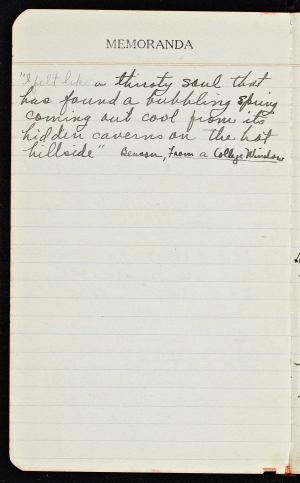 MEMORANDA
"I felt like a thirsty soul that
has found a bubbling spring
coming out cool from its
hidden caverns on the hot
hillside" Benson, From a College Window